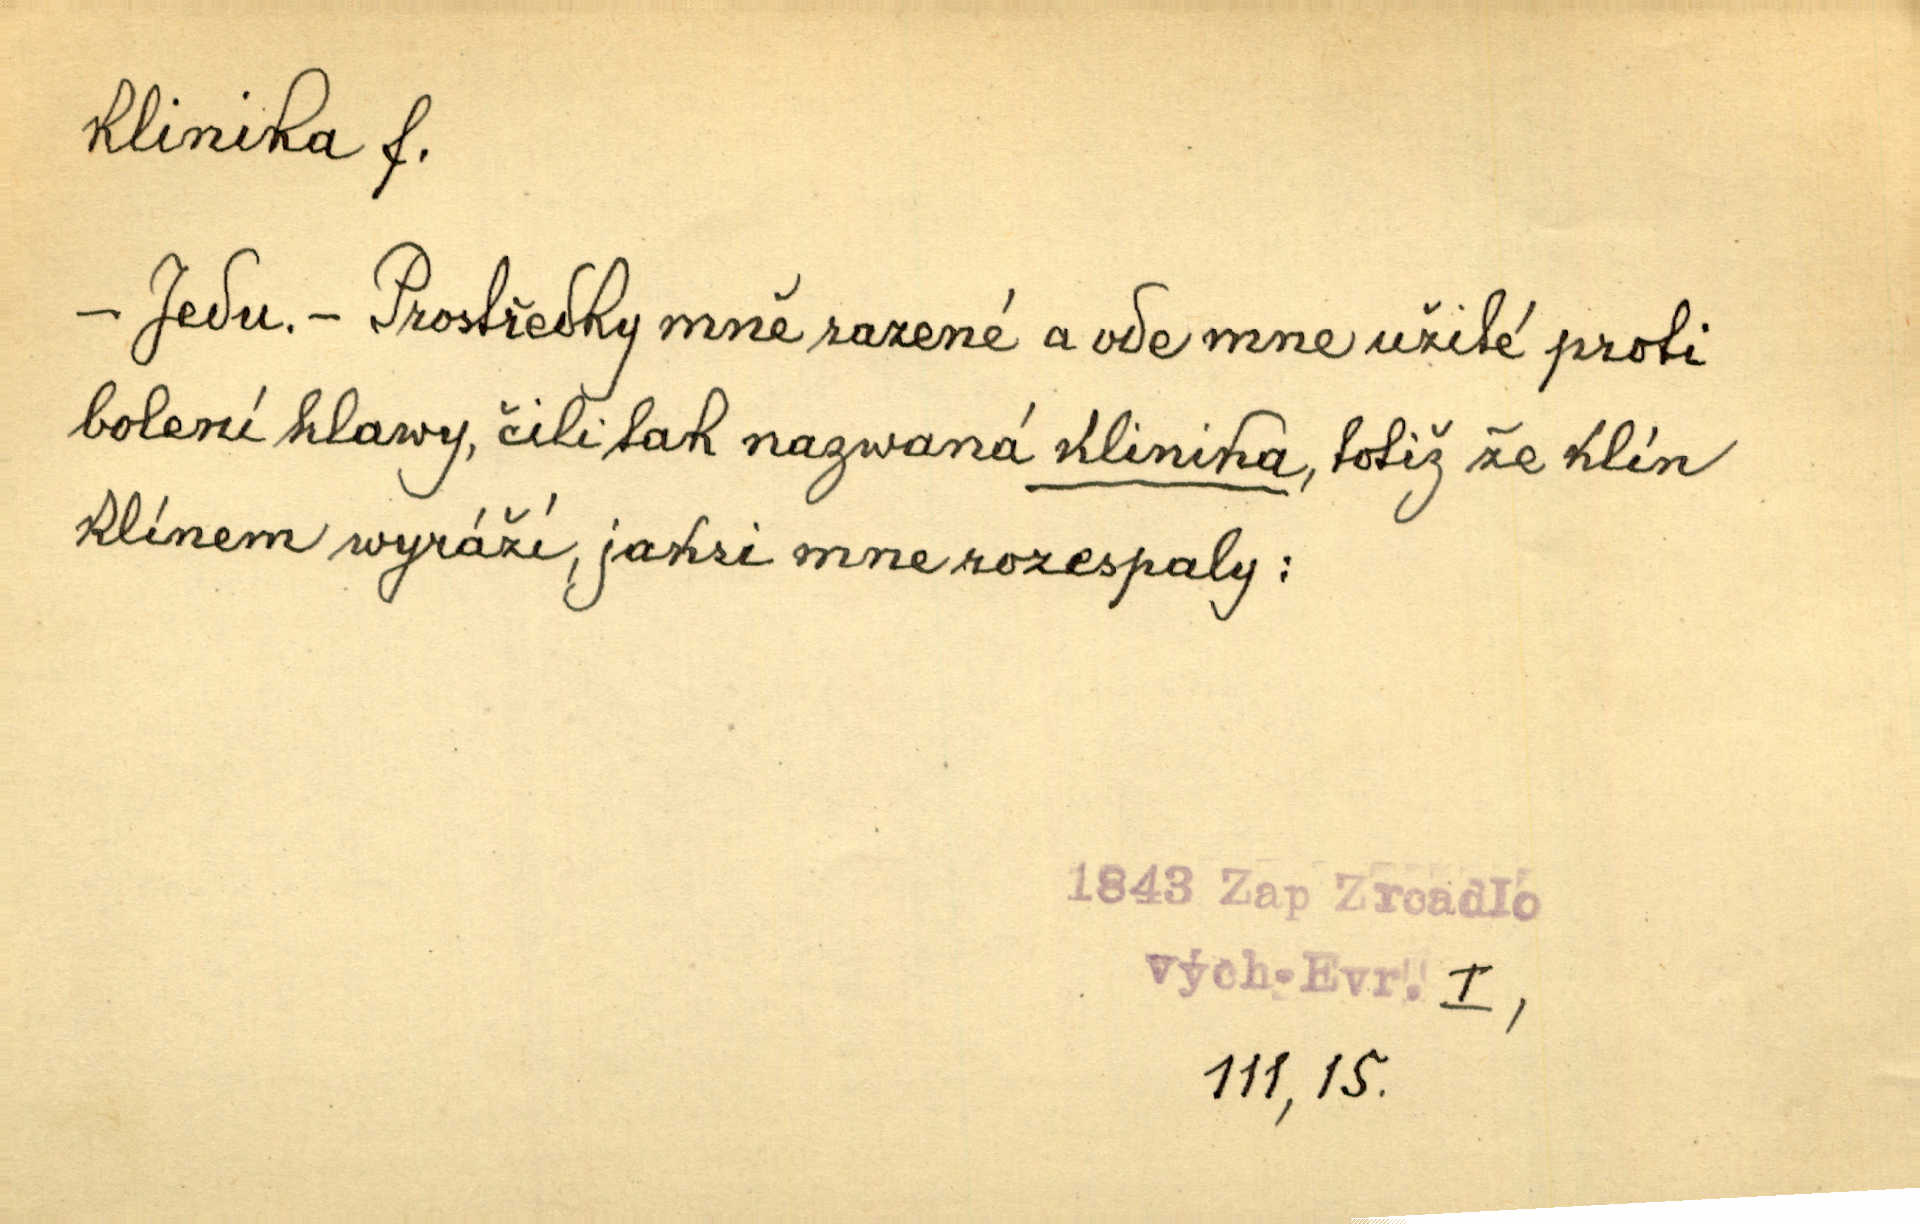 klinika f.
– Jedu. – Prostředky mně razené a ode mne užité proti
bolení hlawy, čili tak nazwaná klinika, totiž že klín
klínem wyráží, jaksi mne rozespaly:
1843 Zap Zrcadlo
vých.Evr. I,
111, 15.